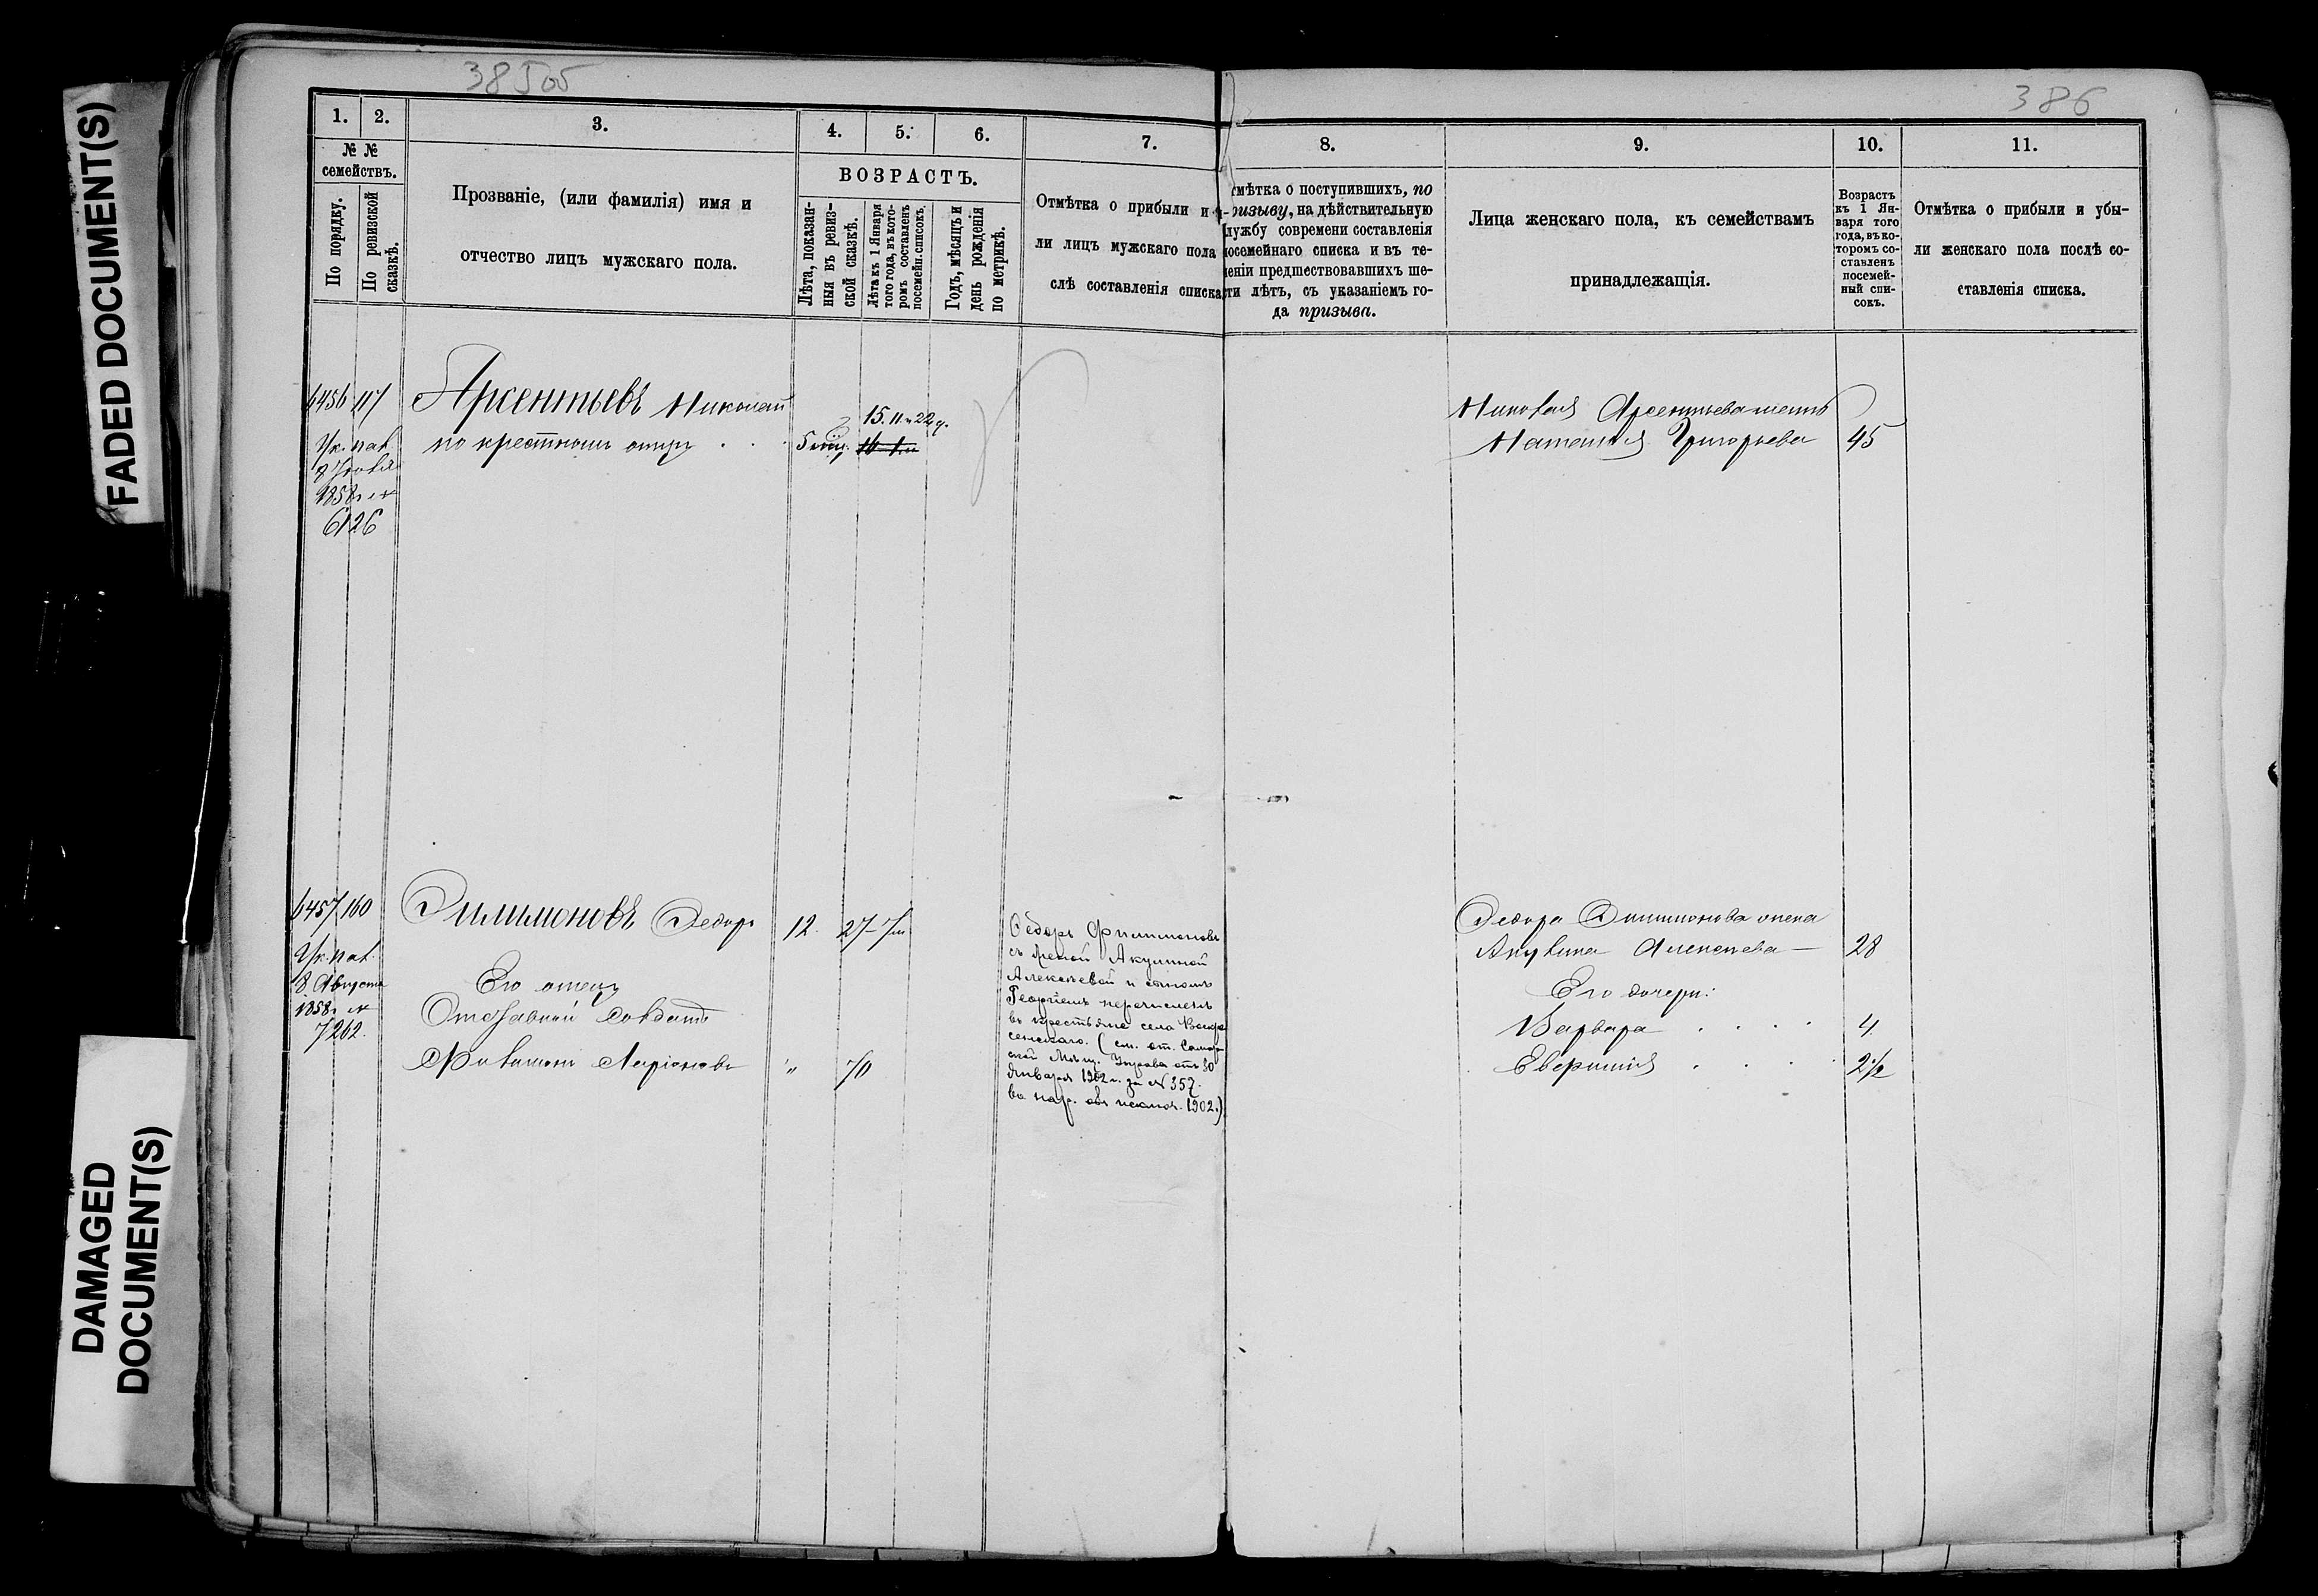 FADED DOCUMENT(S)
DAMAGED
DOCUMENT(S)
385об
386
1. 2. 3. 4. 5. 6. 7.
№ №
семействъ.
По порядку.
По ревизской
сказкѣ.
Прозваніе, (или фамилія) имя и
отчество лицъ мужскаго пола.
ВОЗРАСТЪ.
Лѣта, показан-
ныя въ ревиз-
ской сказкѣ.
Лѣта къ 1 Января
того года, въ кото-
ромъ составленъ
посемейн. списокъ.
Годъ, мѣсяцъ и
день рожденія
по метрикѣ.
Отмѣтка о прибыли и
ли лицъ мужскаго пола
слѣ составленія списка
8. 9. 10. 11.
мѣтка о поступившихъ, по
ризыву, на дѣйствительную
лужбу современи составленія
посемейнаго списка и въ те-
еніи предшествовавшихъ ше-
сти лѣтъ, съ указаніемъ го-
да призыва.
Лица женскаго пола, къ семействамъ
принадлежащія.
Возрастъ
къ 1 Ян-
варя того
года, въ ко-
торомъ со-
ставленъ
посемей-
ный спи-
сокъ.
Отмѣтка о прибыли и убы-
ли женскаго пола послѣ со-
ставленія списка.
6456 117 Арсентьевъ Николай
15. 11. 22
по крестному отцу
Ук. пал.
1858
6126
Николая Арсентьева
Григорьева 45
6457 160 Филимоновъ Федоръ 12. 27
Ук. пал.
8 Августа
1858г
7262.
Его отецъ
Отставной Солдатъ
Филимонъ Ларіоновъ " 70
Федоръ Филимоновъ
съ женой Акулиной
Алексѣевой и сыномъ
Георгіемъ перечисленъ
въ крестьяне села
(см. от.
Мѣщ. Управы отъ 30
Января 1902 г. за № 357.
1902.)
Федора Филимонова жена
Акулина Алексѣева — 28
Его дочери:
Варвара 4.
2½